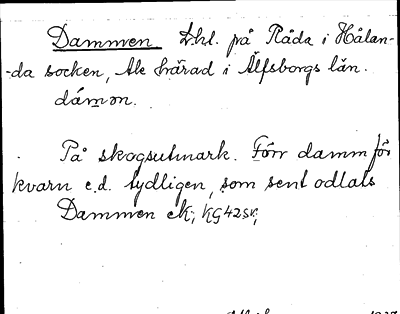 Dammen Lhl. på Råda i Hålan-
-da socken, Ale härad i Älfsborgs län.
dámən.
På skogsutmark. Förr damm för
kvarn e.d. tydligen, som sent odlats
Dammen ek; KG42SV;